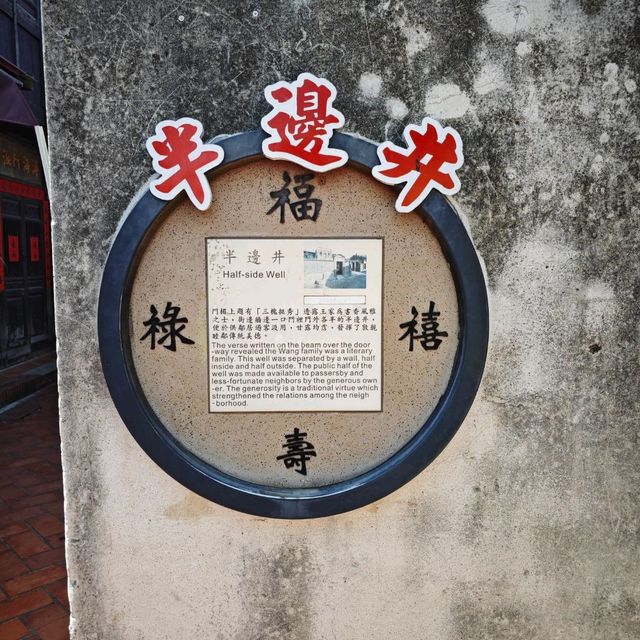 半邊井
福
祿
禧
壽
半邊井
Half-side Well
門楣上題有「三槐挺秀」透露王家為書香風雅
之士，街邊牆邊一口門裡門外各半的半邊井，
便於供鄰居過客汲用，甘露均霑，發揮了敦親
睦鄰傳統美德。
The verse written on the beam over the door
-way revealed the Wang family was a literary
family. This well was separated by a wall, half
inside and half outside. The public half of the
well was made available to passersby and
less-fortunate neighbors by the generous own
-er. The generosity is a traditional virtue which
strengthened the relations among the neigh
-borhood.